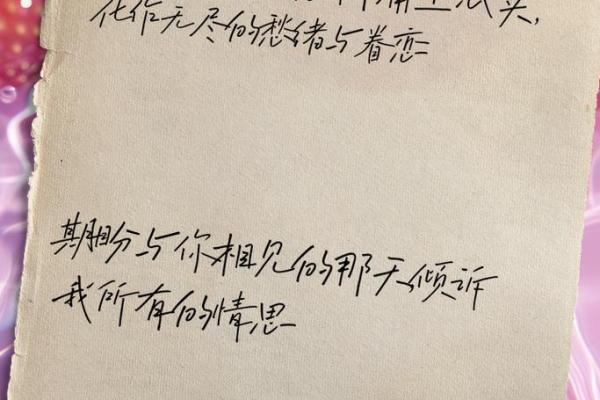 化作无尽的愁绪与眷恋
期盼与你相见的那天倾诉
我所有的情思